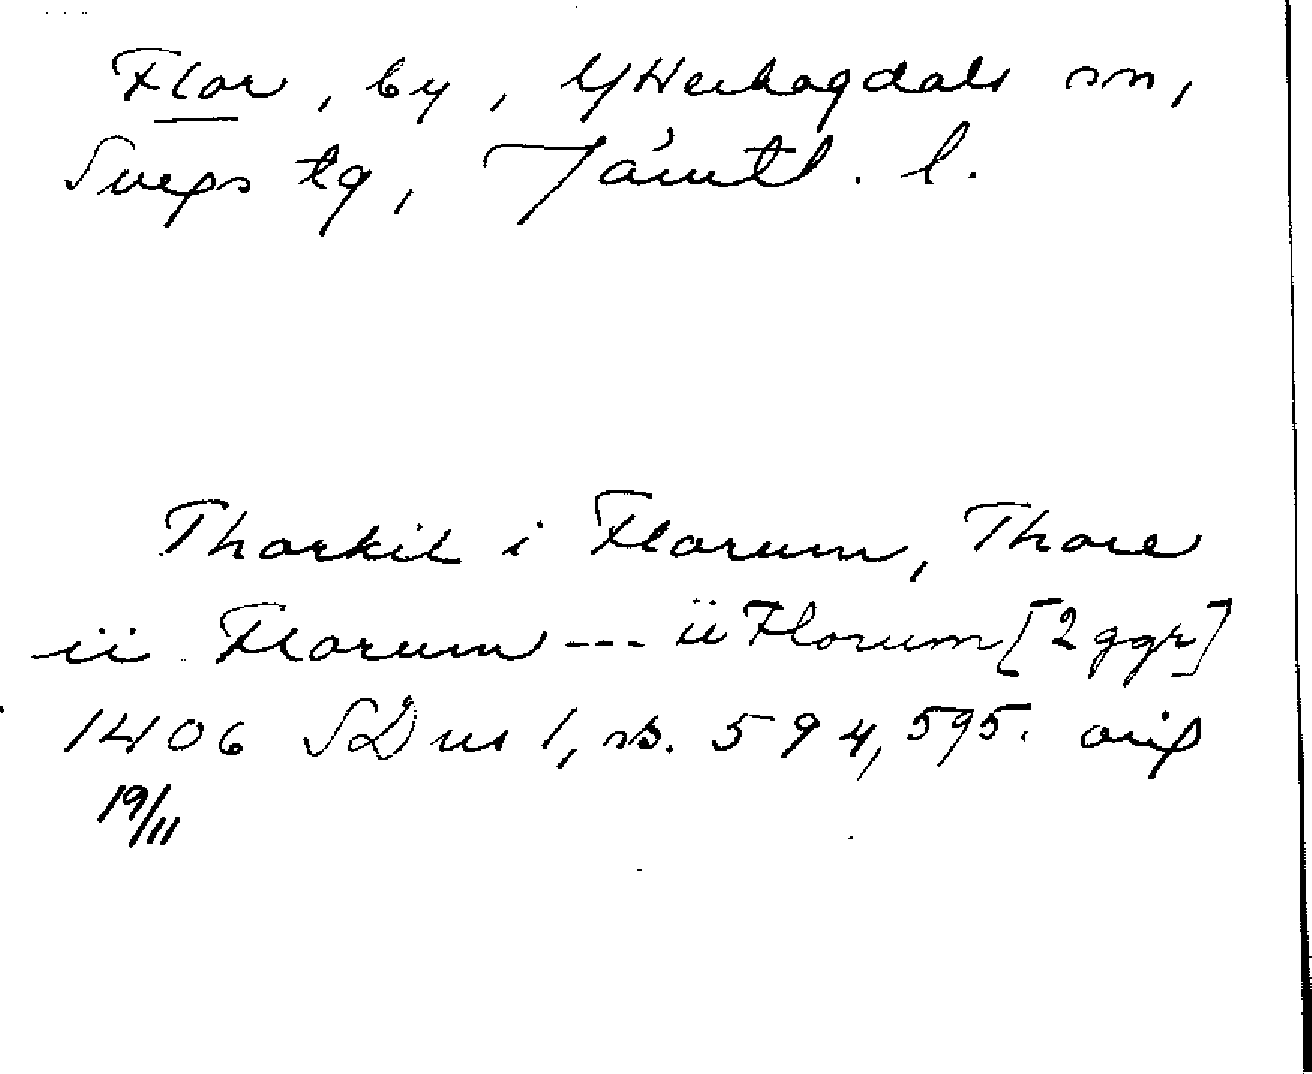 Flor, by, YHerhogdals sn,
Svegs tg, Jämtl. l.
Thorkil i Florum, Thore
ii Florum --- ii Florum [2 ggr]
1406 SD ns 1, s. 594, 595. orig
19/11